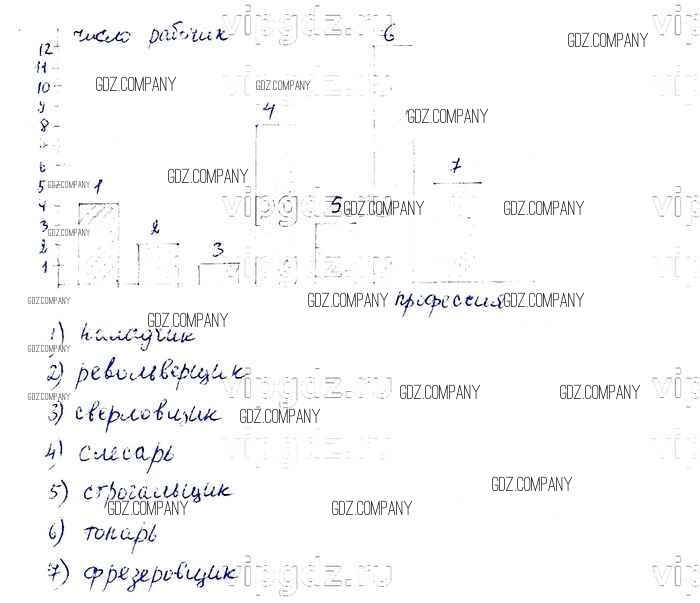 число рабочих
6
12
11
10
9
8
7
6
5
4
3
2
1
4
7
1
5
2
3
профессия
1) наладчик
2) револьверщик
3) сверловщик
4) слесарь
5) строгальщик
6) токарь
7) фрезеровщик
vipgdz.ru
GDZ.COMPANY